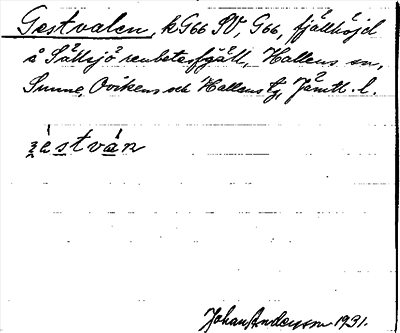 Gestvalen, k G66 SV, G66, fjällhöjd
å Sällsjö renbetesfjäll, Hallens sn,
Sunne, Ovikens och Hallens tg, Jämtl. l.
ʒéstván
Johan Anderson 1931.